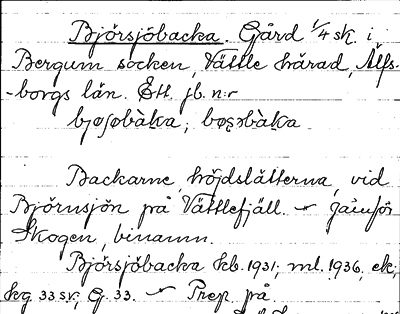 Björsjöbacka. Gård 1/4 sk. i
Bergum socken, Vättle härad, Älfs-
-borgs län. Ett. jb. n:r
bjøʃøbàka; bøʂəbàka
Backarne, höjdslätterna, vid
Björnsjön på Vättlefjäll. — Jämför
Skogen, binamn.
Björsjöbacka kb. 1931; ml. 1936, ek;
hg 33 sv; G. 33. — Prep. på.